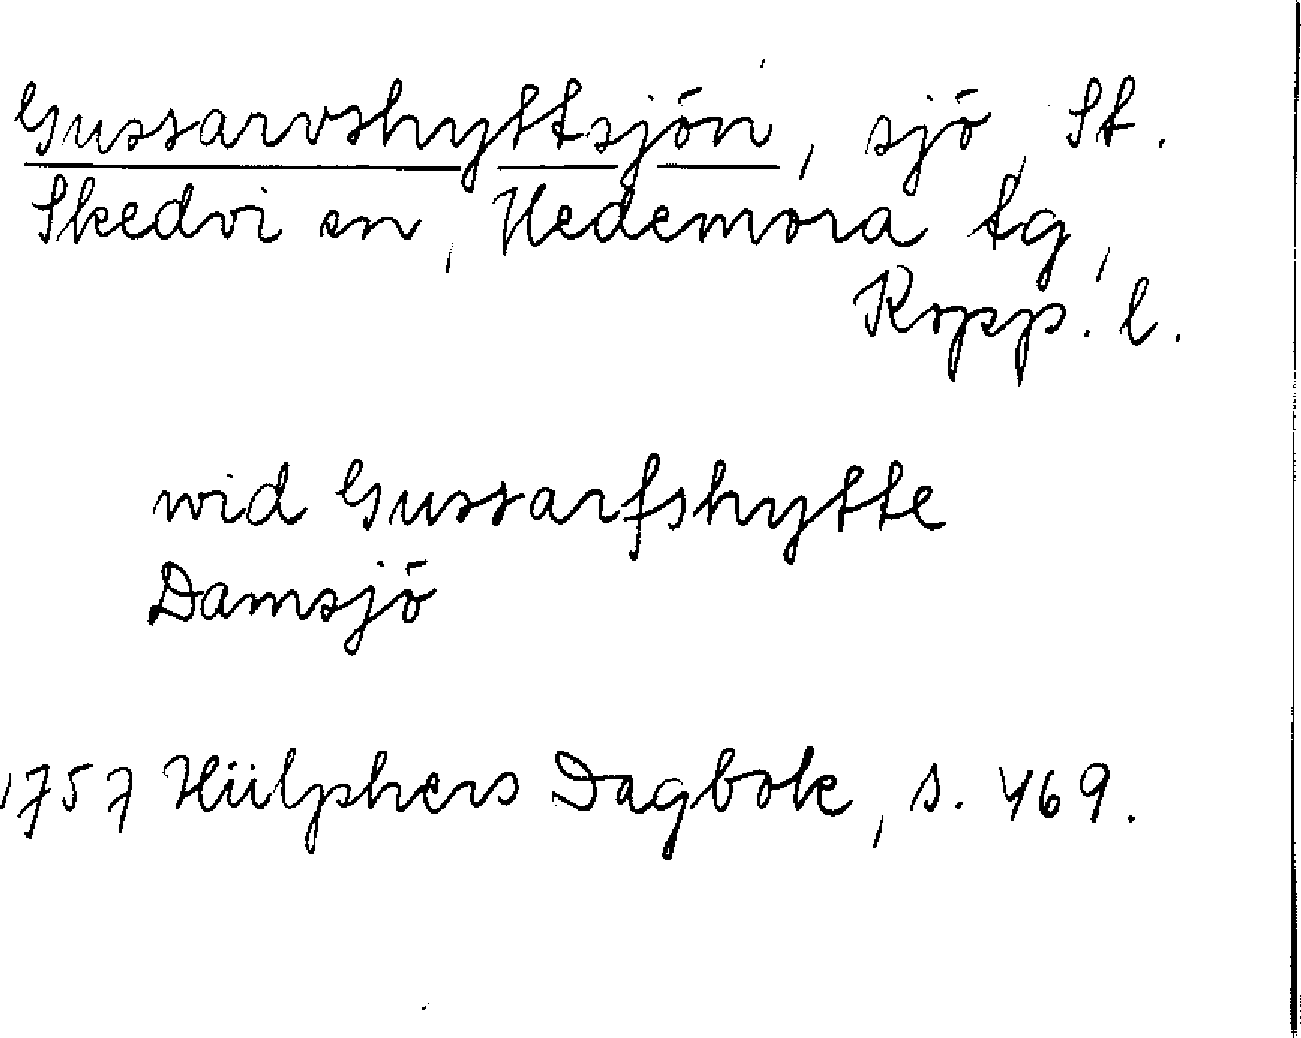 Gussarvshyttsjön, sjö, St.
Skedvi sn, Hedemora tg,
Kopp. l.
wid Gussarfshytte
Damsjö
1757 Hülphers Dagbok, s. 469.